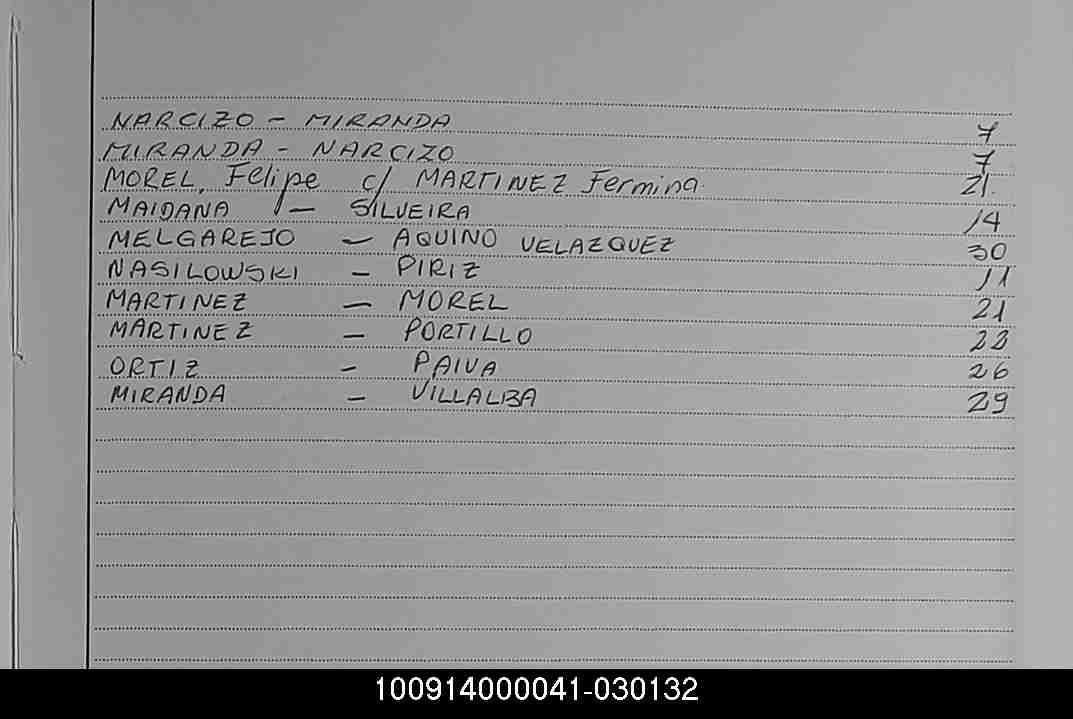 NARCIZO - MIRANDA 7
MIRANDA - NARCIZO 7
MOREL, Felipe c/ MARTINEZ Fermina. 21.
MAIDANA - SILVEIRA 14
MELGAREJO - AQUINO VELAZQUEZ 30
NASILOWSKI - PIRIZ 11
MARTINEZ - MOREL 21
MARTINEZ - PORTILLO 23
ORTIZ - PAIVA 26
MIRANDA - VILLALBA 29
100914000041-030132